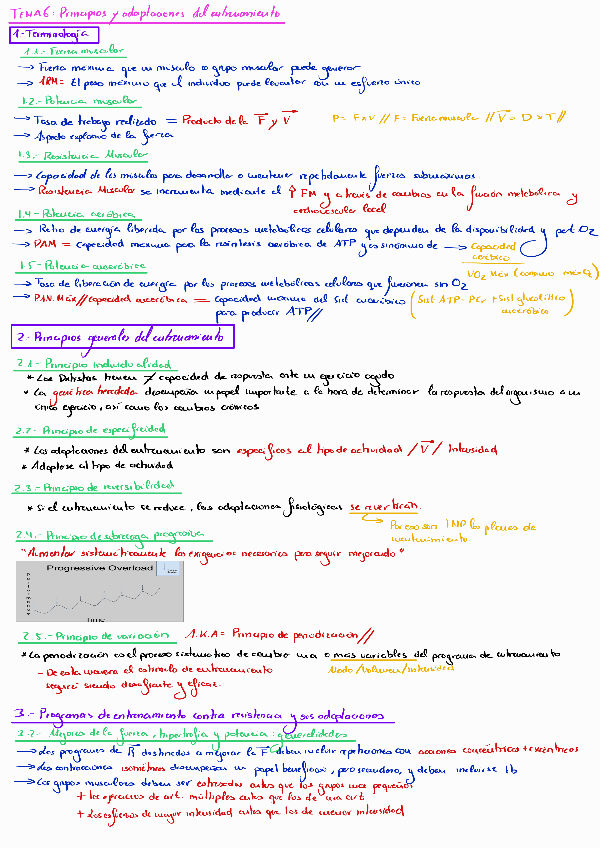 TEMA 6: Principios y adaptaciones del entrenamiento
1.- Terminología
1.1.- Fuerza muscular
→ Fuerza máxima que un músculo o grupo muscular puede generar
→ 1RM = El peso máximo que el individuo puede levantar con un esfuerzo único
1.2.- Potencia muscular
→ Tasa de trabajo realizado = Producto de la F y V
P = F x V // F = Fuerza muscular // V = D x T //
→ Aspecto explosivo de la fuerza
1.3.- Resistencia Muscular
→ Capacidad de los músculo para desarrollar o mantener repetidamente fuerzas submáximas.
→ Resistencia Muscular se incrementa mediante el ↑ FM y a través de cambios en la función metabólica y
cardiovascular local
1.4.- Potencia aeróbica
→ Ratio de energía liberada por los procesos metabólicos celulares que dependen de la disponibilidad y part O2
→ PAM = capacidad máxima para la resíntesis aeróbica de ATP y es sinónimo de → Capacidad
aeróbica
VO2 Máx (consumo máx O2)
1.5.- Potencia anaeróbica
→ Tasa de liberación de energía por los procesos metabólicos celulares que funcionan sin O2
→ P.AN. Máx // capacidad anaeróbica = capacidad máxima del Sist anaeróbico (Sist ATP-PCr + Sist glucolítico
para producir ATP //
anaeróbico)
2.- Principios generales del entrenamiento
2.1.- Principio individualidad
* Los Distintos tienen ≠ capacidad de respuesta ante un ejercicio agudo
* La genética heredada desempeña un papel importante a la hora de determinar la respuesta del organismo a un
único ejercicio, así como los cambios crónicos
2.2.- Principio de especificidad
* Las adaptaciones del entrenamiento son específicas al tipo de actividad / V / Intensidad
* Adaptarse al tipo de actividad
2.3.- Principio de reversibilidad
* Si el entrenamiento se reduce, las adaptaciones fisiológicas se revertirán.
→ Por eso son IMP los planes de
mantenimiento
2.4.- Principio de sobrecarga progresiva
"Aumentar sistemáticamente las exigencias necesarias para seguir mejorando"
Progressive Overload
Time
2.5.- Principio de variación
A.K.A = Principio de periodización //
* La periodización es el proceso sistemático de cambio una o más variables del programa de entrenamiento
Modo/Volumen/Intensidad
- De esta manera el estímulo de entrenamiento
seguirá siendo desafiante y eficaz.
3.- Programas de entrenamiento contra resistencia y sus adaptaciones
3.2.- Mejoras de la fuerza, hipertrofia y potencia: generalidades
→ Los programas de R destinados a mejorar la F deben incluir repeticiones con acciones concéntricas + excéntricas
→ Las contracciones isométricas desempeñan un papel beneficioso, pero secundario, y deben incluirse tb
→ Los grupos musculares deben ser entrenados antes que los grupos más pequeños
+ los ejercicios de art. múltiples antes que los de una art
+ Los esfuerzos de mayor intensidad antes que los de menor intensidad